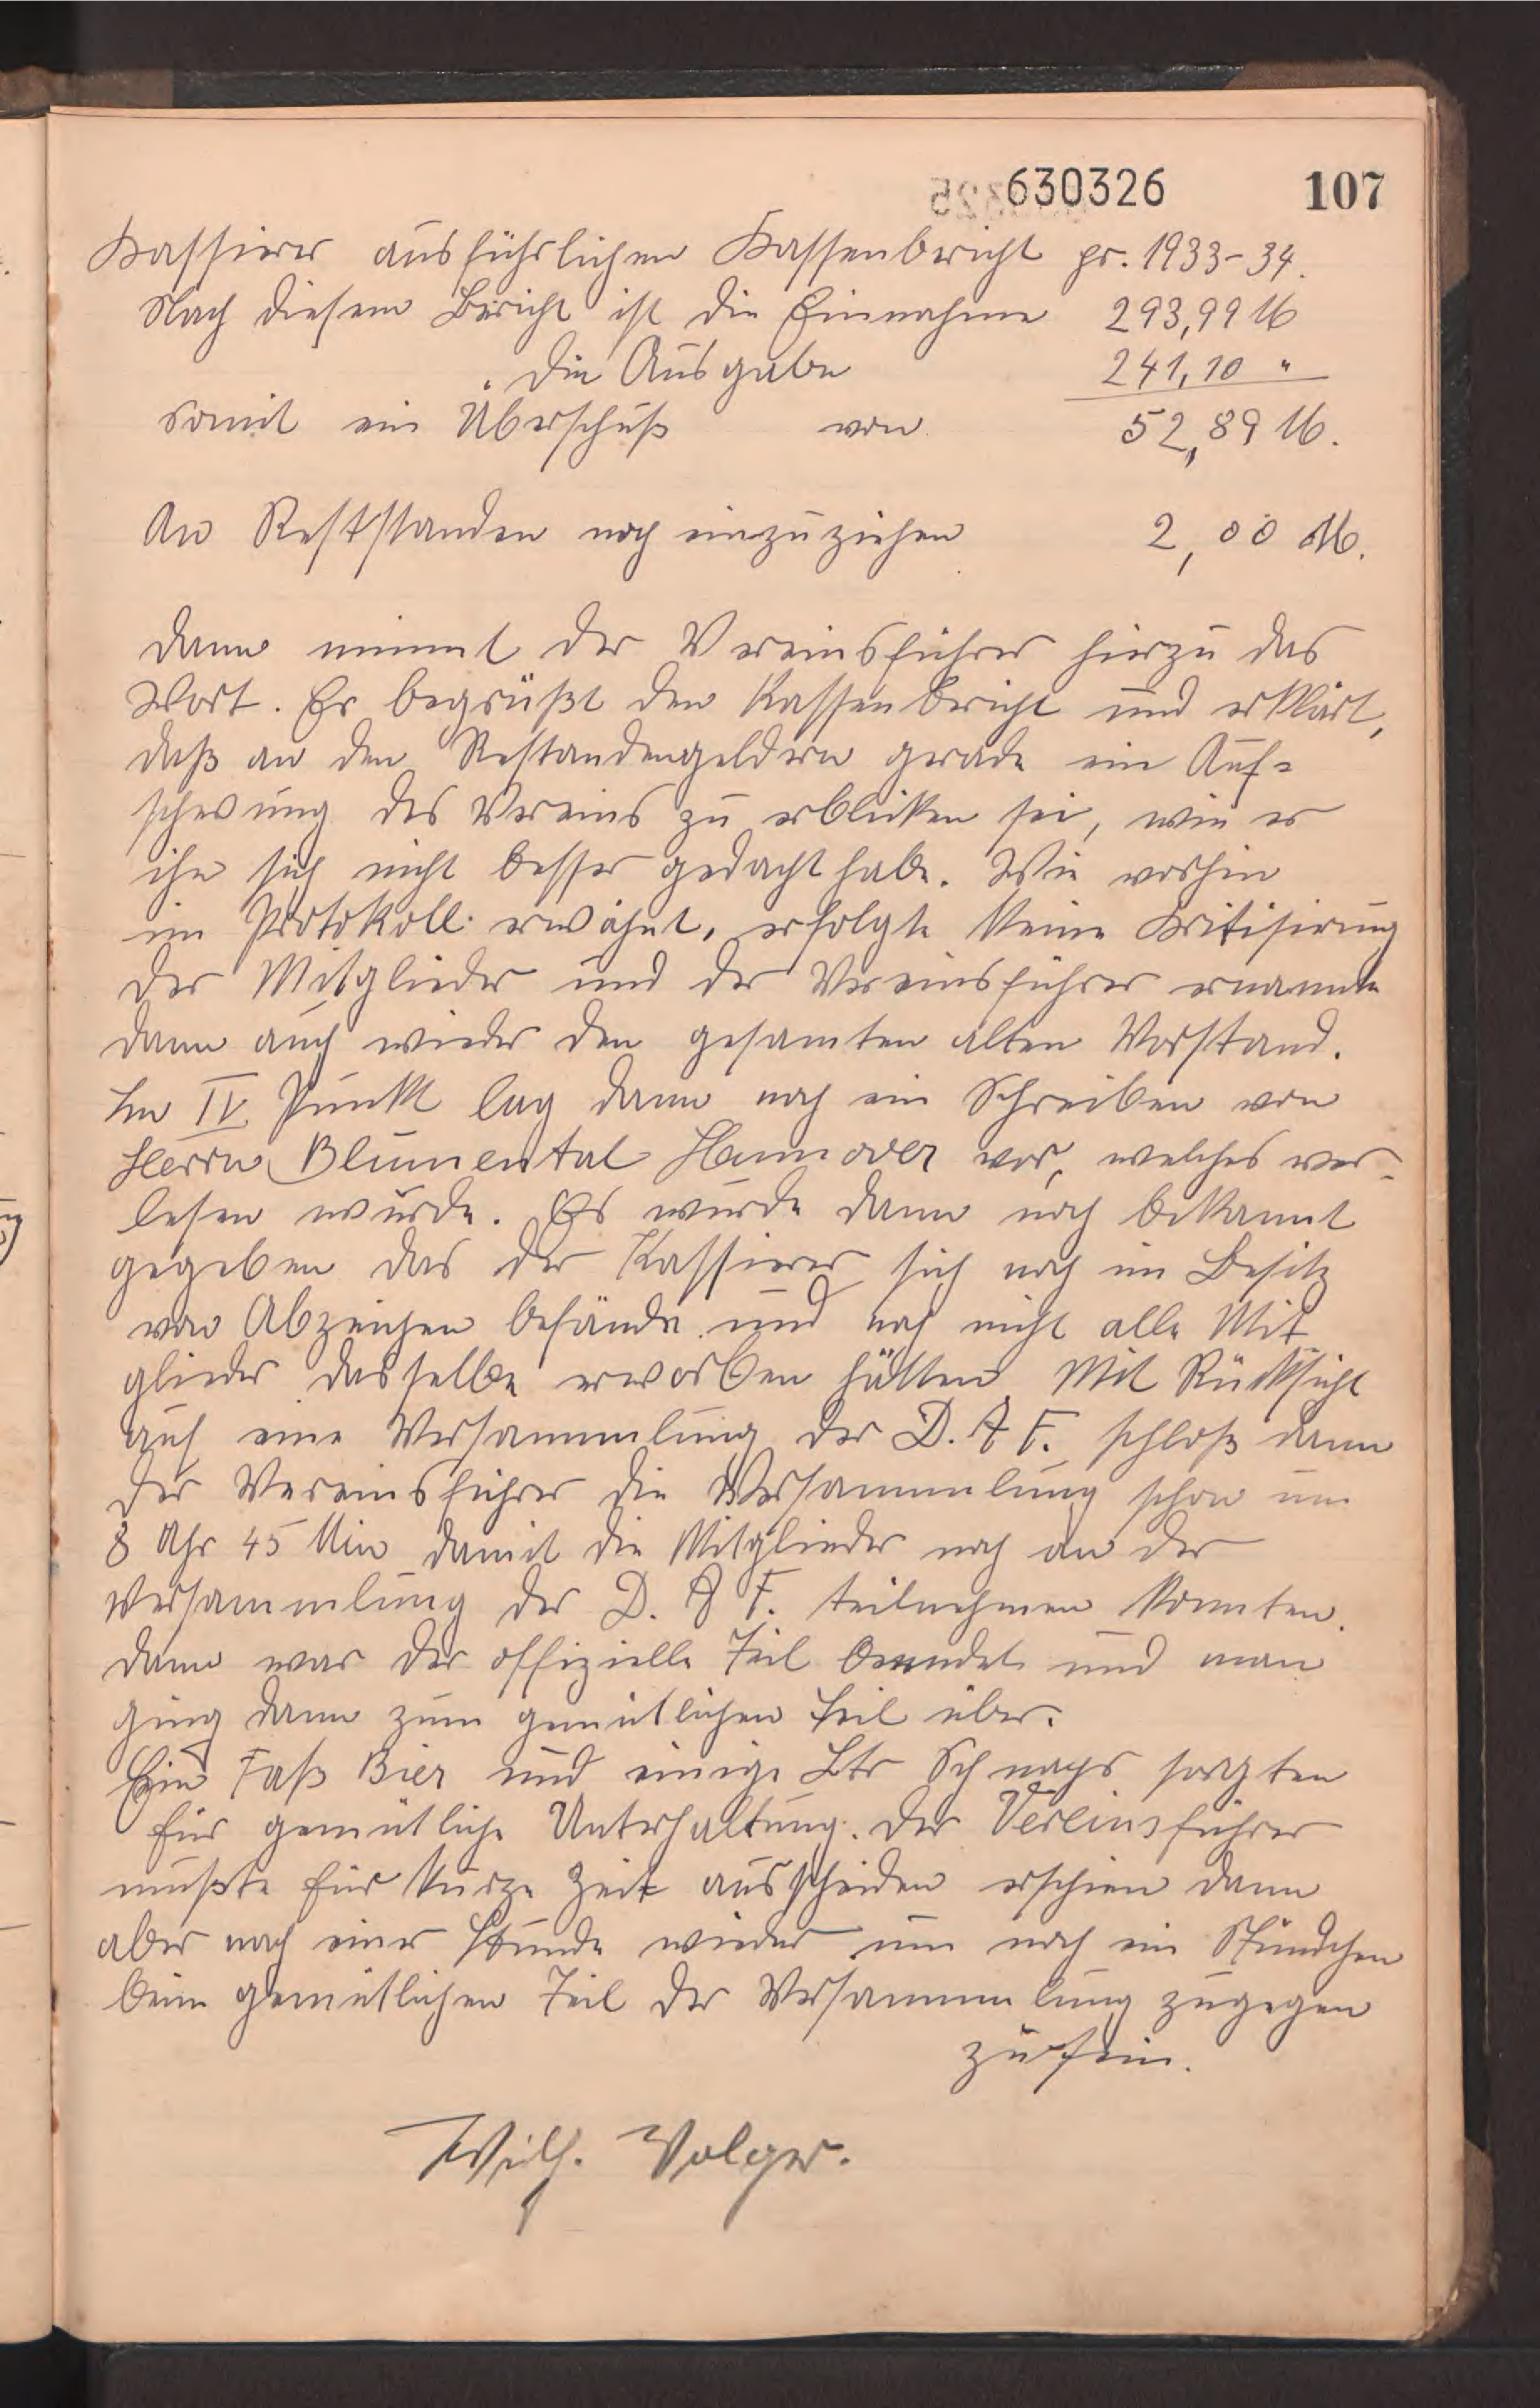 630326 107
Kassierer ausführlichen Kassenbericht pr. 1933-34.
Nach diesem Bericht ist die Einnahme 293,99 M
" die Ausgabe 241,10 "
somit ein Überschuß von 52,89 M.
An Reststanden noch einzuziehen 2,00 M.
Dann nimmt der Vereinsführer hierzu das
Wort. Er begrüßt den Kassenbericht und erklärt,
daß an den Restandengeldern gerade ein Auf-
schwung des Vereins zu erblicken sei, wie er
ihn sich nicht besser gedacht habe. Wie vorhin
im Protokoll erwähnt, erfolgte keine Kritisirung
der Mitglieder und der Vereinsführer ernannte
dann auch wieder den gesamten alten Vorstand.
Im IV Punkt lag dann noch ein Schreiben von
Herrn Blumental Hannover vor, welches ver-
lesen wurde. Es wurde dann noch bekannt
gegeben das der Kassierer sich noch im Besitz
von Abzeichen befände und noch nicht alle Mit
glieder dasselbe erworben hätten. Mit Rücksicht
auf eine Versammlung der D. A F. schloß dann
der Vereinsführer die Versammlung schon um
8 Uhr 45 Min damit die Mitglieder noch an der
Versammlung der D. A F. teilnehmen konnten.
Dann war der offizielle Teil beendet und man
ging dann zum gemütlichen Teil über.
Ein Faß Bier und einige Ltr Schnaps sorgten
für gemütliche Unterhaltung. Der Vereinsführer
mußte für kurze Zeit ausscheiden erschien dann
aber nach einer Stunde wieder um noch ein Stündchen
beim gemütlichen Teil der Versammlung zugegen
zu sein.
Wilh. Volger.